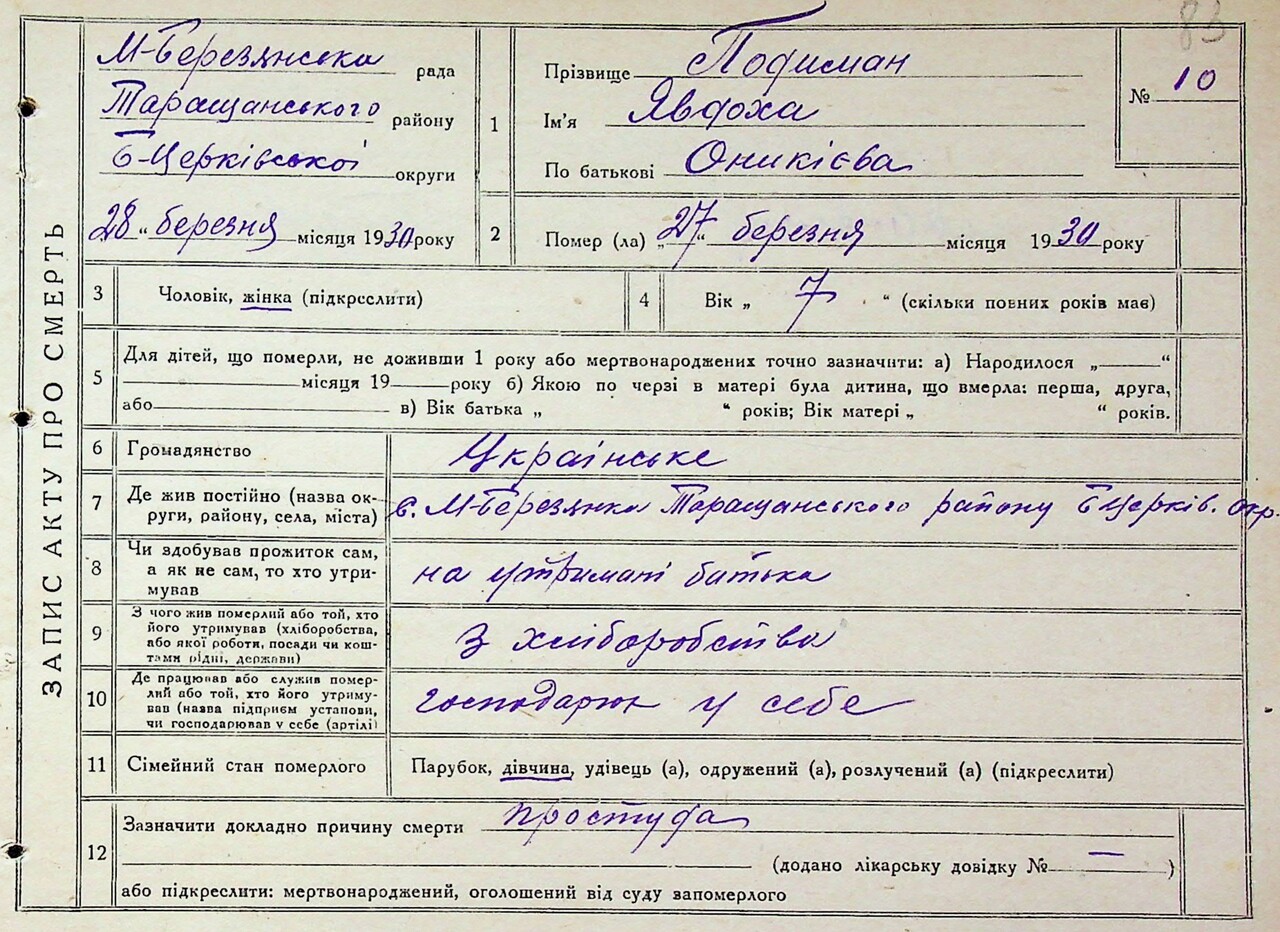 83
М-Березянська рада
Таращанського району
Б-Церківської округи
„28“ березня місяця 1930 року
1
Прізвище Подиман
Ім'я Явдоха
По батькові Оникієва
№ 10
2
Помер (ла) „27“ березня місяця 1930 року
ЗАПИС АКТУ ПРО СМЕРТЬ
3
Чоловік, жінка (підкреслити)
4
Вік „ 7 “ (скільки повних років має)
5
Для дітей, що померли, не доживши 1 року або мертвонароджених точно зазначити: а) Народилося „ “
місяця 19 року б) Якою по черзі в матері була дитина, що вмерла: перша, друга,
або в) Вік батька „ “ років; Вік матері „ “ років.
6
Громадянство
Українське
7
Де жив постійно (назва ок-
руги, району, села, міста)
с. М-Березянка Таращанського району Б Церків. окр.
8
Чи здобував прожиток сам,
а як не сам, то хто утри-
мував
на утримані батька
9
З чого жив померлий або той, хто
його утримував (хліборобства,
або якої роботи, посади чи кош-
тами рідні, держави)
З хліборобства
10
Де працював або служив помер-
лий або той, хто його утриму-
вав (назва підприєм установи,
чи господарював у себе (артілі)
господарює у себе
11
Сімейний стан померлого
Парубок, дівчина, удівець (а), одружений (а), розлучений (а) (підкреслити)
12
Зазначити докладно причину смерти простуда
(додано лікарську довідку № — )
або підкреслити: мертвонароджений, оголошений від суду запомерлого